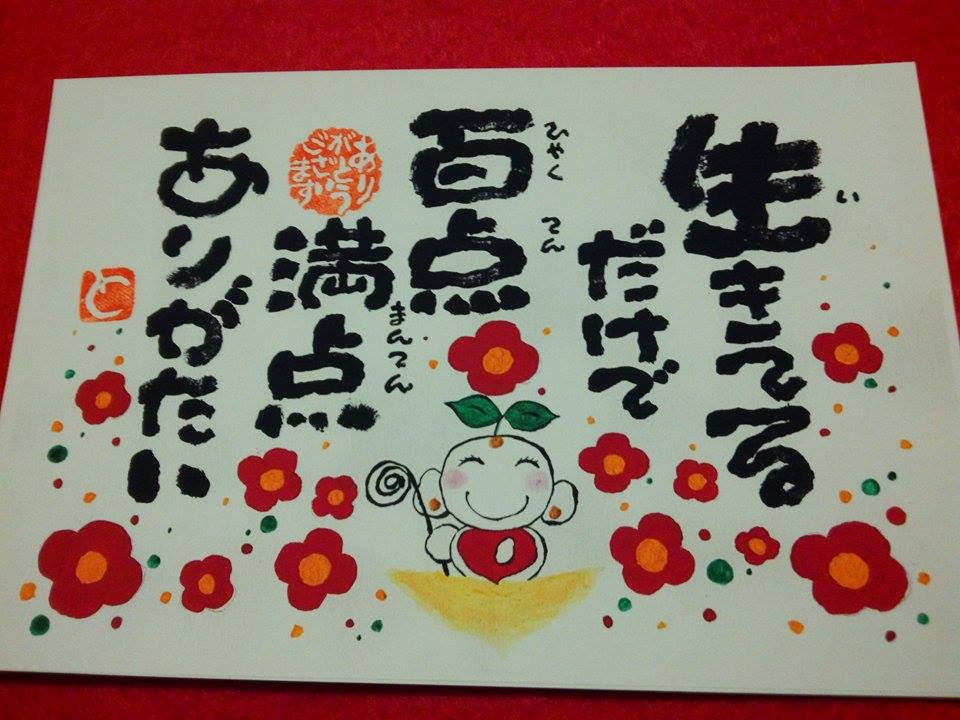 生きてる
い
だけで
百点
ひゃくてん
満点
まんてん
ありがたい
ありがとうございます
と